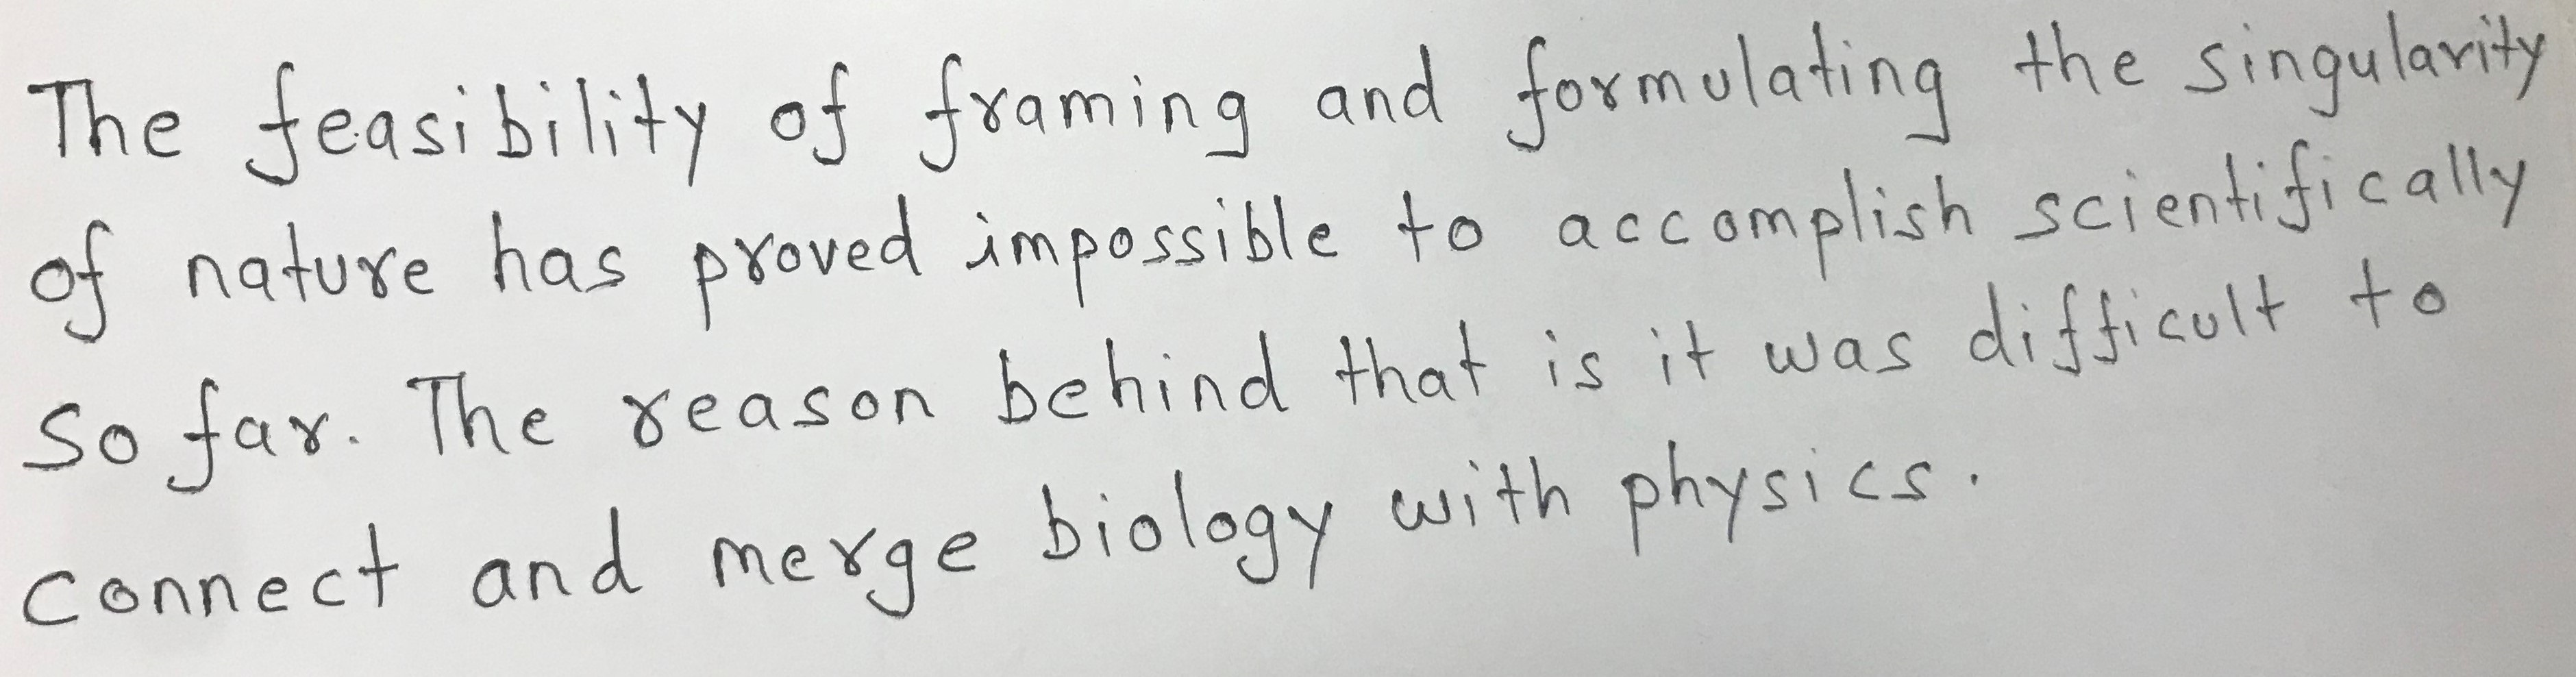 The feasibility of framing and formulating the singularity
of nature has proved impossible to accomplish scientifically
so far. The reason behind that is it was difficult to
connect and merge biology with physics.